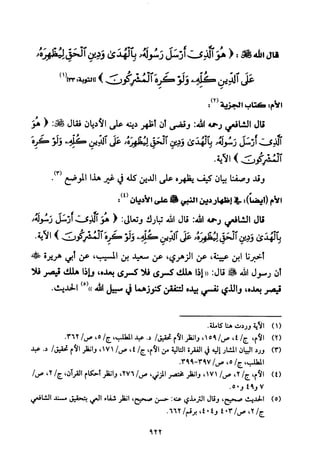 قال الله ﷻ: ﴿ هُوَ ٱلَّذِىٓ أَرْسَلَ رَسُولَهُۥ بِٱلْهُدَىٰ وَدِينِ ٱلْحَقِّ لِيُظْهِرَهُۥ
عَلَى ٱلدِّينِ كُلِّهِۦ وَلَوْ كَرِهَ ٱلْمُشْرِكُونَ ﴾ [التوبة: ٣٣](١)
الأم: كتاب الجزية(٢):
قال الشافعي رحمه الله: وقضى أن أظهر دينه على الأديان فقال ﷻ: ﴿ هُوَ
ٱلَّذِىٓ أَرْسَلَ رَسُولَهُۥ بِٱلْهُدَىٰ وَدِينِ ٱلْحَقِّ لِيُظْهِرَهُۥ عَلَى ٱلدِّينِ كُلِّهِۦ وَلَوْ كَرِهَ
ٱلْمُشْرِكُونَ ﴾ الآية.
وقد وصفنا بيان كيف يظهره على الدين كله في غير هذا الموضع(٣).
الأم (أيضاً): في إظهار دين النبي ﷺ على الأديان(٤):
قال الشافعي رحمه الله: قال الله تبارك وتعالى: ﴿ هُوَ ٱلَّذِىٓ أَرْسَلَ رَسُولَهُۥ
بِٱلْهُدَىٰ وَدِينِ ٱلْحَقِّ لِيُظْهِرَهُۥ عَلَى ٱلدِّينِ كُلِّهِۦ وَلَوْ كَرِهَ ٱلْمُشْرِكُونَ ﴾ الآية.
أخبرنا ابن عيينة، عن الزهري، عن سعيد بن المسيب، عن أبي هريرة ﷺ
أن رسول الله ﷺ قال: «إذا هلك كسرى فلا كسرى بعده، وإذا هلك قيصر فلا
قيصر بعده، والذي نفسي بيده لتنفقن كنوزهما في سبيل الله»(٥) الحديث.
(١) الآية وردت هنا كاملة.
(٢) الأم، ج/٤، ص/١٥٩، وانظر الأم تحقيق/ د. عبد المطلب، ج/٥، ص/٣٦٢.
(٣) ورد البيان المشار إليه في الفقرة التالية من الأم، ج/٤، ص/١٧١، وانظر الأم تحقيق/ د. عبد
المطلب، ج/٥، ص/٣٩٧-٣٩٩.
(٤) الأم، ج/٤، ص/١٧١، وانظر مختصر المزني، ص/٢٧٦، وانظر أحكام القرآن، ج/٢، ص/
٤٩ و٥٠.
(٥) الحديث صحيح، وقال الترمذي عنه: حسن صحيح، انظر شفاء العي بتحقيق مسند الشافعي
ج/٢، ص/٤٠٣ و٤٠٤، برقم/٦٦٢.
٩٢٢